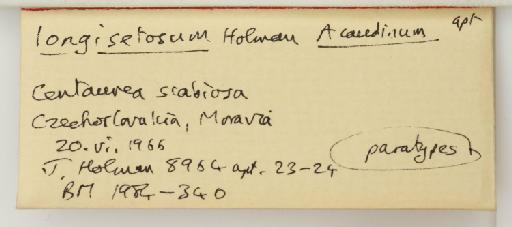 longisetosum Holman Acaudinum apt
Centaurea scabiosa
Czechoslovakia, Moravia
20.vi.1966
J. Holman 8964 apt. 23-24
paratypes
BM 1984-340